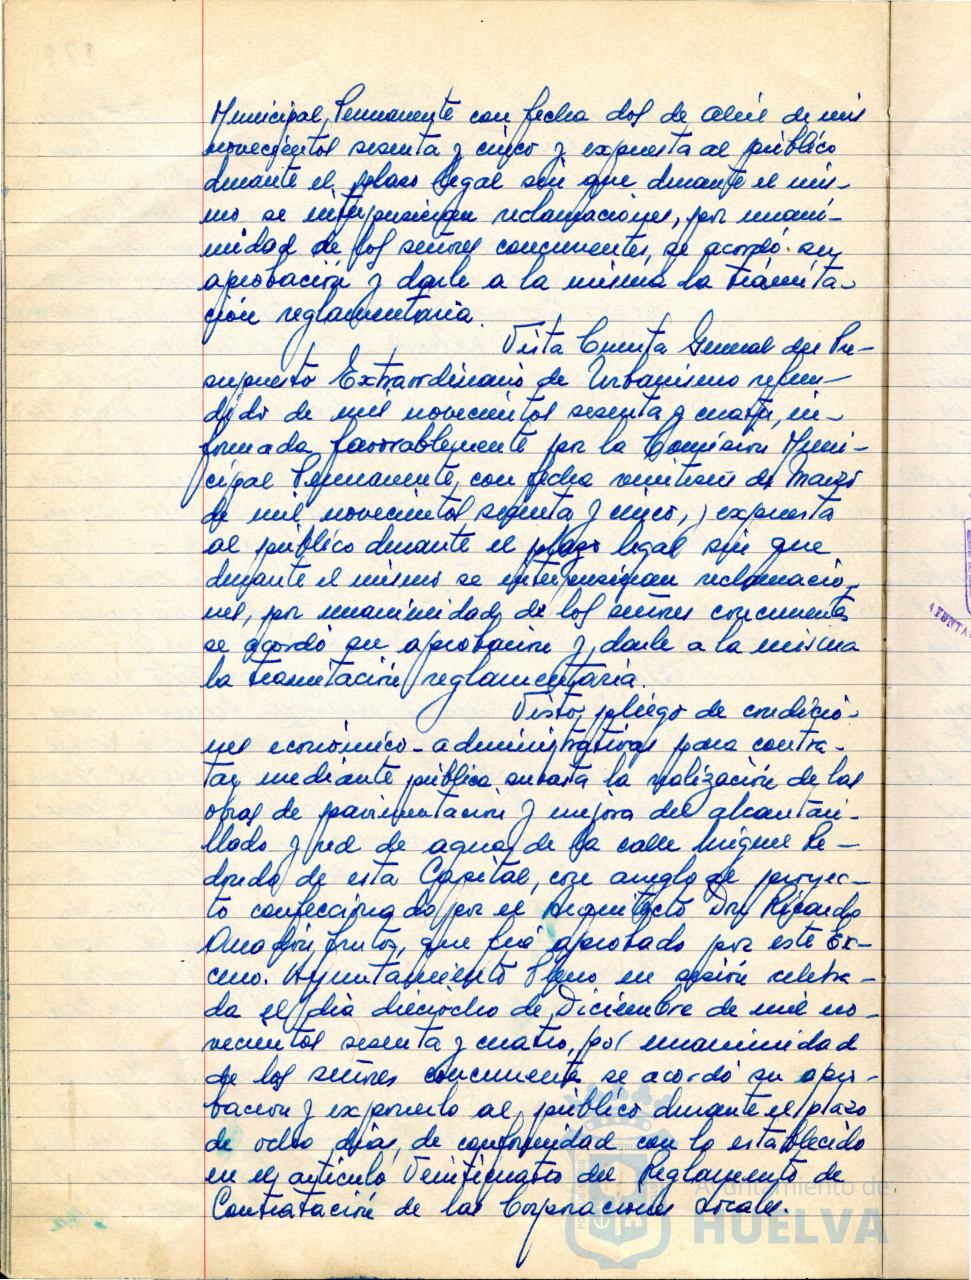 Municipal Permanente con fecha dos de abril de mil
novecientos sesenta y cinco y expuesta al público
durante el plazo legal sin que durante el mis-
mo se interpusieran reclamaciones, por unani-
midad de los señores concurrentes, se acordó su
aprobación y darle a la misma la tramita-
ción reglamentaria.
Vista Cuenta General del Pre-
supuesto Extraordinario de Urbanismo refun-
dido de mil novecientos sesenta y cuatro, in-
formada favorablemente por la Comisión Muni-
cipal Permanente, con fecha veintiseis de Marzo
de mil novecientos sesenta y cinco, y expuesta
al público durante el plazo legal sin que
durante el mismo se interpusieran reclamacio-
nes, por unanimidad de los señores concurrentes
se acordó su aprobación y darle a la misma
la tramitación reglamentaria.
Visto pliego de condicio-
nes económico-administrativas para contra-
tar mediante pública subasta la realización de las
obras de pavimentación y mejora del alcantari-
llado y red de agua de la calle Miguel Re-
dondo de esta Capital, con arreglo al proyec-
to confeccionado por el Arquitecto Don Ricardo
Anadón Frutos, que fué aprobado por este Ex-
cmo. Ayuntamiento Pleno en sesión celebra-
da el día dieciocho de Diciembre de mil no-
vecientos sesenta y cuatro, por unanimidad
de los señores concurrentes se acordó su apro-
bación y exponerlo al público durante el plazo
de ocho días, de conformidad con lo establecido
en el artículo Veinticuatro del Reglamento de
Contratación de las Corporaciones Locales.
Ayuntamiento de
HUELVA